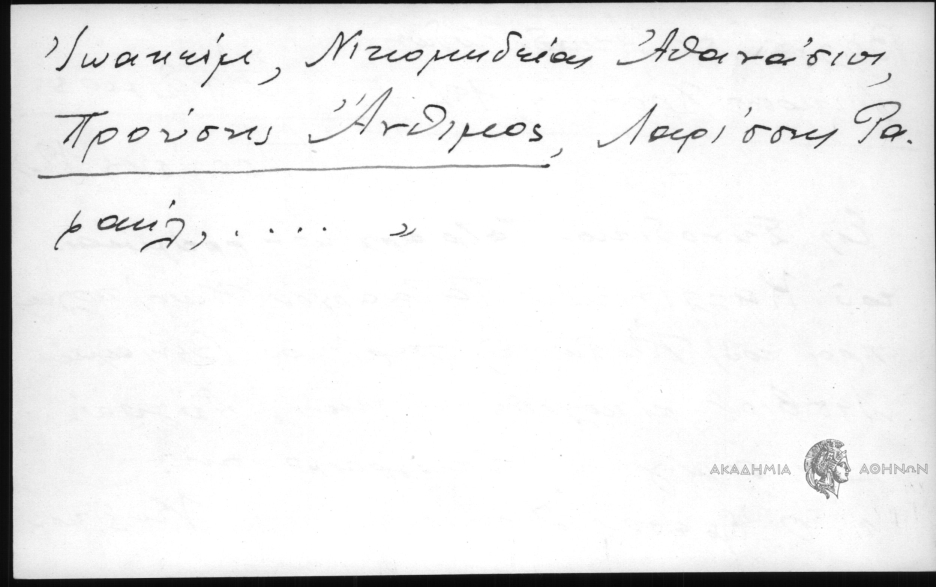 Ἰωακείμ, Νικομηδείας Ἀθανάσιος,
Προύσης Ἄνθιμος, Λαρίσσης Ρα-
φαήλ, ..... „
ΑΚΑΔΗΜΙΑ ΑΘΗΝΩΝ